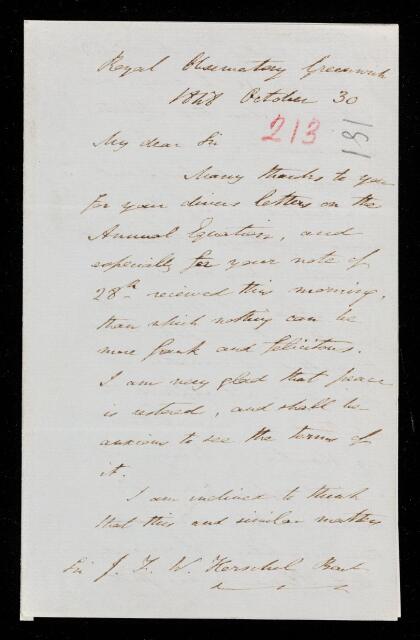 Royal Observatory Greenwich
1848 October 30
213
181
My dear Sir
Many thanks to you
for your divers letters on the
Annual Equation, and
especially for your note of
28th recieved this morning,
than which nothing can be
more frank and felicitous.
I am very glad that peace
is restored, and shall be
anxious to see the terms of
it.
I am inclined to think
that this and similar matters
Sir J. F. W. Herschel Bart